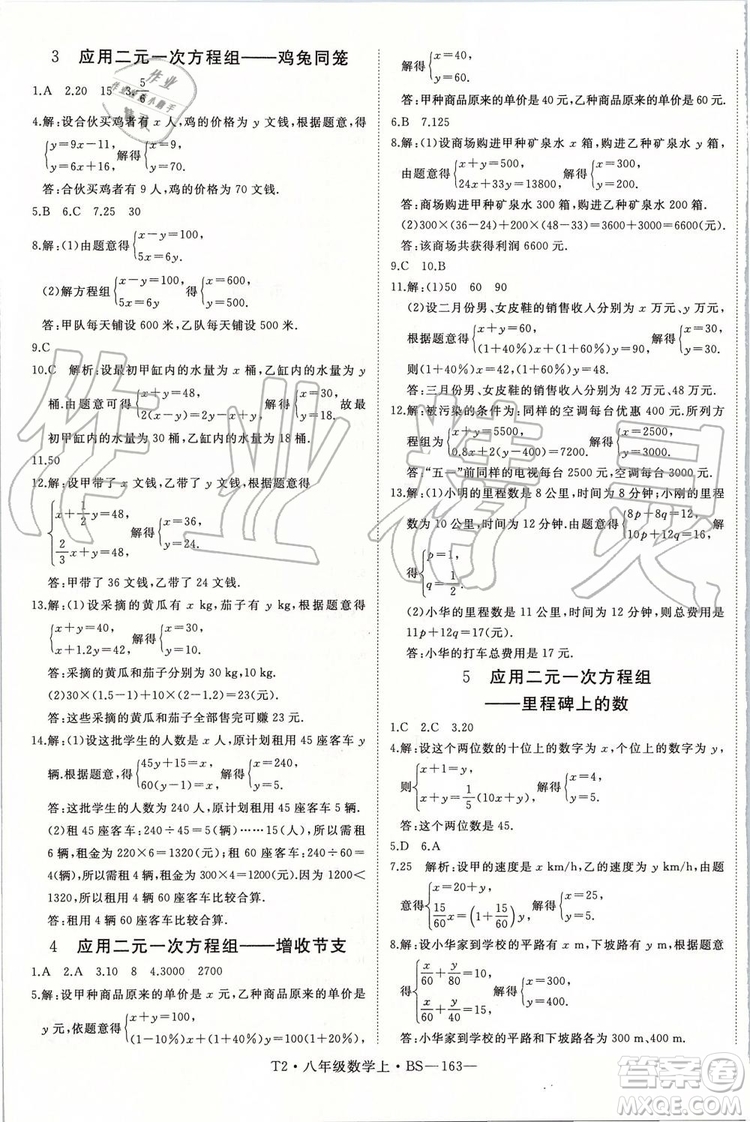 3 应用二元一次方程组——鸡兔同笼
1.A 2.20 15 3.5/6
4.解:设合伙买鸡者有 x 人,鸡的价格为 y 文钱,根据题意,得
{y=9x-11, y=6x+16, 解得{x=9, y=70.
答:合伙买鸡者有 9 人,鸡的价格为 70 文钱.
5.B 6.C 7.25 30
8.解:(1)由题意得{x-y=100, 5x=6y.
(2)解方程组{x-y=100, 5x=6y 得{x=600, y=500.
答:甲队每天铺设 600 米,乙队每天铺设 500 米.
9.C
10.C 解析:设最初甲缸内的水量为 x 桶,乙缸内的水量为 y
桶,根据题意得{x+y=48, 2(x-y)=2y-(x-y), 解得{x=30, y=18. 故最
初甲缸内的水量为 30 桶,乙缸内的水量为 18 桶.
11.50
12.解:设甲带了 x 文钱,乙带了 y 文钱,根据题意,得
{x+1/2y=48, 2/3x+y=48, 解得{x=36, y=24.
答:甲带了 36 文钱,乙带了 24 文钱.
13.解:(1)设采摘的黄瓜有 x kg,茄子有 y kg,根据题意,得
{x+y=40, x+1.2y=42, 解得{x=30, y=10.
答:采摘的黄瓜和茄子分别有 30 kg,10 kg.
(2)30×(1.5-1)+10×(2-1.2)=23(元).
答:这些采摘的黄瓜和茄子全部售出可赚 23 元.
14.解:(1)设这批学生的人数是 x 人,原计划租用 y 辆 45 座
客车,根据题意,得{45y+15=x, 60(y-1)=x, 解得{x=240, y=5.
答:这批学生的人数为 240 人,原计划租用 45 座客车 5 辆.
(2)租 45 座客车:240÷45=5(辆)……15(人),所以需租
6 辆,租金为 220×6=1320(元);租 60 座客车:240÷60=
4(辆),所以需租 4 辆,租金为 300×4=1200(元).1200<
1320,租用 4 辆 60 座客车比较合算.
答:租用 4 辆 60 座客车比较合算.
4 应用二元一次方程组——增收节支
1.A 2.A 3.10 8 4.3000 2700
5.解:设甲种商品原来的单价是 x 元,乙种商品原来的单价是
y 元,依题意得{x+y=100, (1-10%)x+(1+40%)y=100(1+20%),
解得{x=40, y=60.
答:甲种商品原来的单价是 40 元,乙种商品原来的单价是 60 元.
6.B 7.125
8.解:(1)设商场购进甲种矿泉水 x 箱,购进乙种矿泉水 y 箱,
由题意得{x+y=500, 24x+33y=13800, 解得{x=300, y=200.
答:商场购进甲种矿泉水 300 箱,购进乙种矿泉水 200 箱.
(2)300×(36-24)+200×(48-33)=3600+3000=6600(元).
答:该商场共获得利润 6600 元.
9.C 10.B
11.解:(1)50 60 90
(2)设二月份男、女皮鞋的销售收入分别为 x 万元、y 万元,
根据题意,得{x+y=60, (1+40%)x+(1+60%)y=90, 解得{x=30, y=30.
则(1+40%)x=42,(1+60%)y=48.
答:三月份男、女皮鞋的销售收入分别为 42 万元、48 万元.
12.解:被污染的条件为:同样的空调每台优惠 400 元.所列方
程组为{x+y=5500, 0.8x+2(y-400)=7200, 解得{x=2500, y=3000.
答:“五一”前同样的电视每台 2500 元,空调每台 3000 元.
13.解:(1)小明的里程数是 8 公里,时间为 8 分钟;小刚的里程
数为 10 公里,时间为 12 分钟.由题意得{8p+8q=12, 10p+12q=16, 解
得{p=1, q=1/2.
(2)小华的里程数是 11 公里,时间为 12 分钟,则总费用是
11p+12q=17(元).
答:小华的打车总费用是 17 元.
5 应用二元一次方程组
——里程碑上的数
1.C 2.C 3.20
4.解:设这个两位数的十位上的数字为 x,个位上的数字为 y,
则{x+1=y, x=1/5(10x+y), 解得{x=4, y=5.
答:这个两位数是 45.
5.D 6.A
7.25 解析:设甲的速度是 x km/h,乙的速度为 y km/h,由题
意得{x=20+y, 15/60x=10+15/60y, 解得{x=45, y=25.
8.解:设小华家到学校的平路有 x m,下坡路有 y m.根据题意,
得{x/60+y/80=10, x/60+y/40=15, 解得{x=300, y=400.
答:小华家到学校的平路和下坡路各为 300 m,400 m.
T2·八年级数学上·BS—163—
作业精灵
答案圈